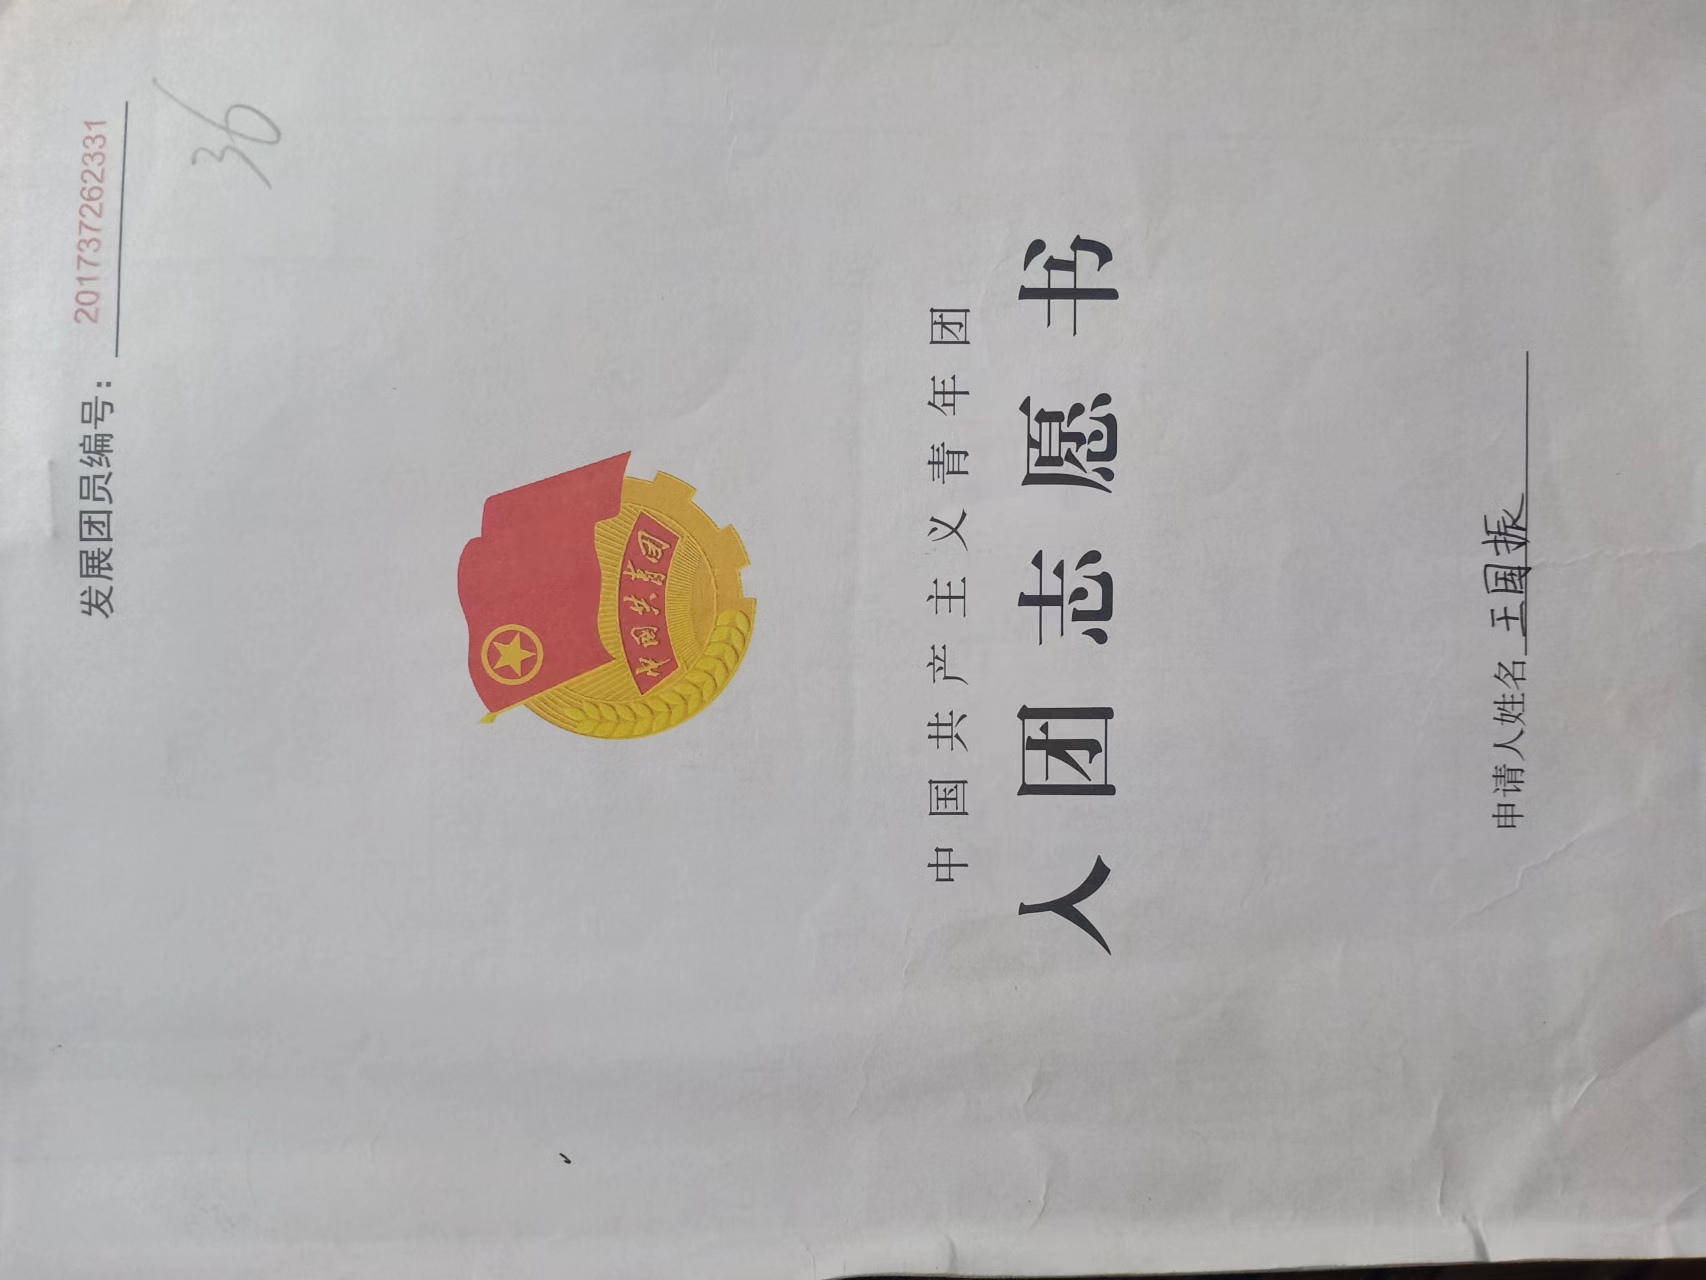 发展团员编号：201737262331
36
中国共青团
中国共产主义青年团
入团志愿书
申请人姓名 王国振